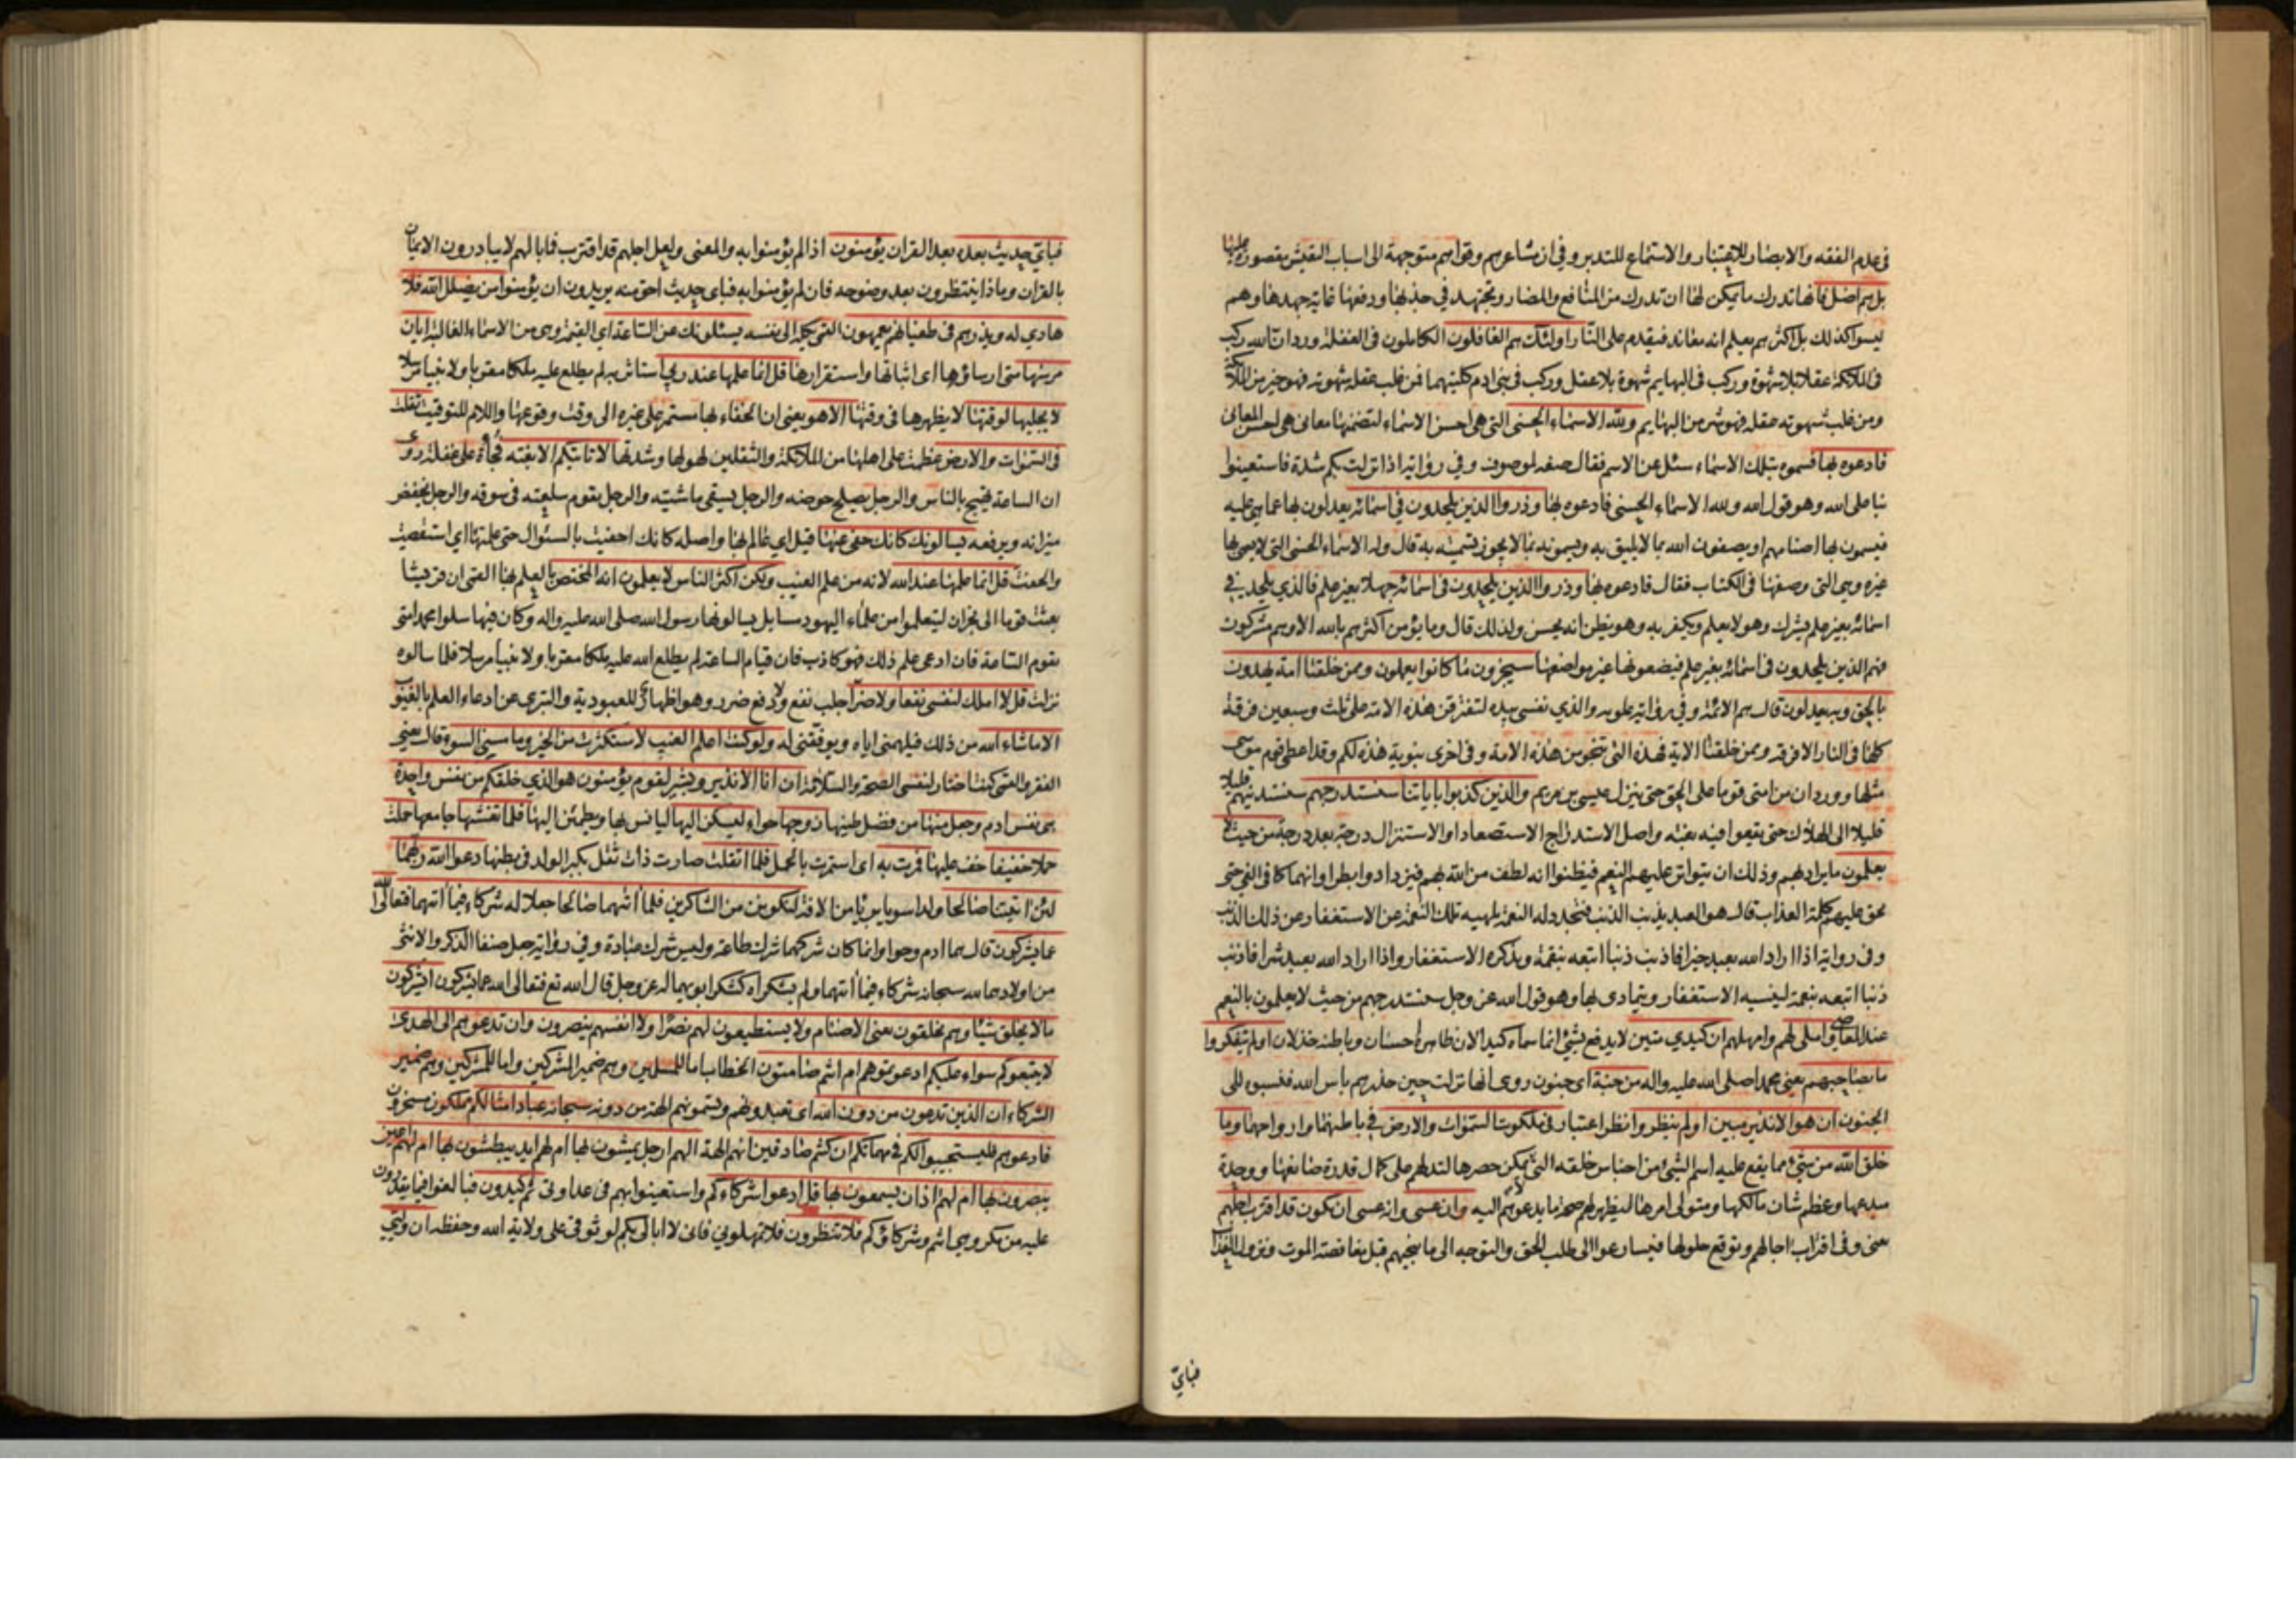 فى عدم الفقه والابصار للاعتبار والاستماع للتدبر وفى ان مشاعرهم وقواهم متوجهة الى اسباب التعيش مقصورة عليها
بل هم اضل فانها تدرك ما يمكن لها ان تدرك من المنافع والمضار وتجتهد في جذبها ودفعها غاية جهدها وهم
ليسوا كذلك بل اكثرهم يعلم انه معاند فيقدم على النار اولئك هم الغافلون الكاملون فى الغفلة ورد ان الله ركب
فى الملائكة عقلا بلا شهوة وركب فى البهايم شهوة بلا عقل وركب فى بنى ادم كلتيهما فمن غلب عقله شهوته فهو خير من الملائكة
ومن غلب شهوته عقله فهو شر من البهايم ولله الاسماء الحسنى التى هى احسن الاسماء لتضمنها معانى هى احسن المعانى
فادعوه بها فسموه بتلك الاسماء سئل عن الاسم فقال صفة لموصوف وفي رواية اذا نزلت بكم شدة فاستعينوا
بنا على الله وهو قول الله ولله الاسماء الحسنى فادعوه بها وذروا الذين يلحدون في اسمائه يعدلون بها عما هى عليه
فيسمون بها اصنامهم او يصفون الله بما لا يليق به ويسمونه بما لا يجوز تسميته به قال وله الاسماء الحسنى التى لا يسمى بها
غيره وهى التى وصفها فى الكتاب فقال فادعوه بها وذروا الذين يلحدون فى اسمائه جهلا بغير علم فالذي يلحد في
اسمائه بغير علم يشرك وهو لا يعلم ويكفر به وهو يظن انه يحسن ولذلك قال وما يؤمن اكثرهم بالله الا وهم مشركون
فهم الذين يلحدون فى اسمائه بغير علم فيضعونها غير مواضعها سيجزون ما كانوا يعملون وممن خلقنا امة يهدون
بالحق وبه يعدلون قال هم الائمة وفي رواية علوية والذي نفسى بيده لتفترقن هذه الامة على ثلث وسبعين فرقة
كلها فى النار الا فرقة وممن خلقنا الاية فهذه التى تنجو من هذه الامة وفى اخرى نبوية هذه لكم وقد اعطى قوم موسى
مثلها وورد ان من امتى قوما على الحق حتى ينزل عيسى بن مريم والذين كذبوا باياتنا سنستدرجهم سنستدنيهم قليلا
قليلا الى الهلاك حتى يقعوا فيه بغتة واصل الاستدراج الاستصعاد او الاستنزال درجة بعد درجة من حيث لا
يعلمون ما يراد بهم وذلك ان يتواتر عليهم النعم فيظنوا انه لطف من الله بهم فيزدادوا بطرا وانهماكا فى الغي حتى
يحق عليهم كلمة العذاب قال هو العبد يذنب الذنب فتجدد له النعمة تلهيه تلك النعمة عن الاستغفار عن ذلك الذنب
وفى رواية اذا اراد الله بعبد خيرا فاذنب ذنبا اتبعه بنقمة ويذكره الاستغفار واذا اراد الله بعبد شرا فاذنب
ذنبا اتبعه بنعمة لينسيه الاستغفار ويتمادى بها وهو قول الله عز وجل سنستدرجهم من حيث لا يعلمون بالنعم
عند المعاصي واملى لهم وامهلهم ان كيدي متين لا يدفع بشئ انما سماه كيدا لان ظاهره احسان وباطنه خذلان اولم يتفكروا
ما بصاحبهم يعنى محمدا صلى الله عليه واله من جنة اى جنون روى انها نزلت حين حذرهم باس الله فنسبوه الى
الجنون ان هو الا نذير مبين اولم ينظروا نظر اعتبار فى ملكوت السموات والارض في باطنهما وارواحهما وما
خلق الله من شئ مما يقع عليه اسم الشئ من اجناس خلقه التى لا يمكن حصرها لتدلهم على كمال قدرة صانعها ووحدة
مبدعها وعظم شان مالكها ومتولى امرها ليظهر لهم صحة ما يدعوهم اليه وان عسى وانه عسى ان يكون قد اقترب اجلهم
يعنى وفى اقتراب اجالهم وتوقع حلولها فيسارعوا الى طلب الحق والتوجه الى ما ينجيهم قبل مغافصة الموت ونزول العذاب
فباي
فباي حديث بعده بعد القران يؤمنون اذا لم يؤمنوا به والمعنى ولعل اجلهم قد اقترب فما بالهم لا يبادرون الايمان
بالقران وماذا ينتظرون بعد وضوحه فان لم يؤمنوا به فباى حديث احق منه يريدون ان يؤمنوا من يضلل الله فلا
هادي له ويذرهم فى طغيانهم يعمهون القمى يكله الى نفسه يسئلونك عن الساعة اى القيمة وهى من الاسماء الغالبة ايان
مرسيها متى ارساؤها اى اثباتها واستقرارها قل انما علمها عند ربي استاثر به لم يطلع عليه ملكا مقربا ولا نبيا مرسلا
لا يجليها لوقتها لا يظهرها فى وقتها الا هو يعنى ان الخفاء بها مستمر على غيره الى وقت وقوعها واللام للتوقيت ثقلت
فى السموات والارض عظمت على اهلها من الملائكة والثقلين لهولها وشدتها لا تاتيكم الا بغتة فجأة على غفلة روى
ان الساعة تهيج بالناس والرجل يصلح حوضه والرجل يسقى ماشيته والرجل يقوم سلعته فى سوقه والرجل يخفض
ميزانه ويرفعه يسالونك كانك حفى عنها قيل اي عالم بها واصله كانك احفيت بالسئوال حتى علمتها اي استقصيت
والحفت قل انما علمها عند الله لانه من علم الغيب ولكن اكثر الناس لا يعلمون انه المختص بالعلم بها القمى ان قريشا
بعثت قوما الى نجران ليتعلموا من علماء اليهود مسايل يسالونها رسول الله صلى الله عليه واله وكان فيها سلوا محمدا متى
تقوم الساعة فان ادعى علم ذلك فهو كاذب فان قيام الساعة لم يطلع الله عليه ملكا مقربا ولا نبيا مرسلا فلما سالوه
نزلت قل لا املك لنفسى نفعا ولا ضرا جلب نفع ولا دفع ضرر وهو اظهار للعبودية والتبرى عن ادعاء العلم بالغيوب
الا ما شاء الله من ذلك فيلهمنى اياه ويوفقنى له ولو كنت اعلم الغيب لاستكثرت من الخير وما مسنى السوء قال يعنى
الفقر والقمى كنت اختار لنفسى الصحة والسلامة ان انا الا نذير وبشير لقوم يؤمنون هو الذي خلقكم من نفس واحدة
هى نفس ادم وجعل منها من فضل طينها زوجها حواء ليسكن اليها ليانس بها ويطمئن اليها فلما تغشيها جامعها حملت
حملا خفيفا خف عليها فمرت به اى استمرت بالحمل فلما اثقلت صارت ذات ثقل بكبر الولد فى بطنها دعوا الله ربهما
لئن اتيتنا صالحا ولدا سويا بريا من الافة لنكونن من الشاكرين فلما اتيهما صالحا جعلا له شركاء فيما اتيهما فتعالى الله
عما يشركون قال هما ادم وحوا وانما كان شركهما شرك طاعة وليس شرك عبادة وفى رواية جعل صنفا الذكر والانثى
من اولادهما لله سبحانه شركاء فيما اتيهما ولم يشكراه كشكر ابويهما له عز وجل قال الله تع فتعالى الله عما يشركون ايشركون
ما لا يخلق شيئا وهم يخلقون يعنى الاصنام ولا يستطيعون لهم نصرا ولا انفسهم ينصرون وان تدعوهم الى الهدى
لا يتبعوكم سواء عليكم ادعوتموهم ام انتم صامتون الخطاب اما للمسلمين وهم ضمير المشركين واما للمشركين وهم ضمير
الشركاء ان الذين تدعون من دون الله اى تعبدونهم وتسمونهم الهة من دونه سبحانه عباد امثالكم مملكون مسخرون
فادعوهم فليستجيبوا لكم فى مهماتكم ان كنتم صادقين انهم الهة الهم ارجل يمشون بها ام لهم ايد يبطشون بها ام لهم اعين
يبصرون بها ام لهم اذان يسمعون بها قل ادعوا شركاءكم واستعينوا بهم فى عداوتى ثم كيدون فبالغوا فيما تقدرون
عليه من مكروهى انتم وشركاؤكم فلا تنظرون فلا تمهلونى فانى لا ابالى بكم لوثوقى على ولاية الله وحفظه ان وليى